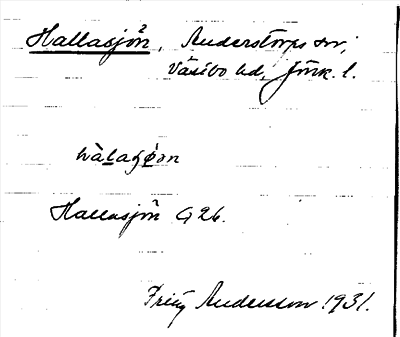 Hallasjön, Anderstorps sn,
Västbo hd, Jönk. l.
hàlaʂøən
Hallasjön G26.
Anderson 1931.